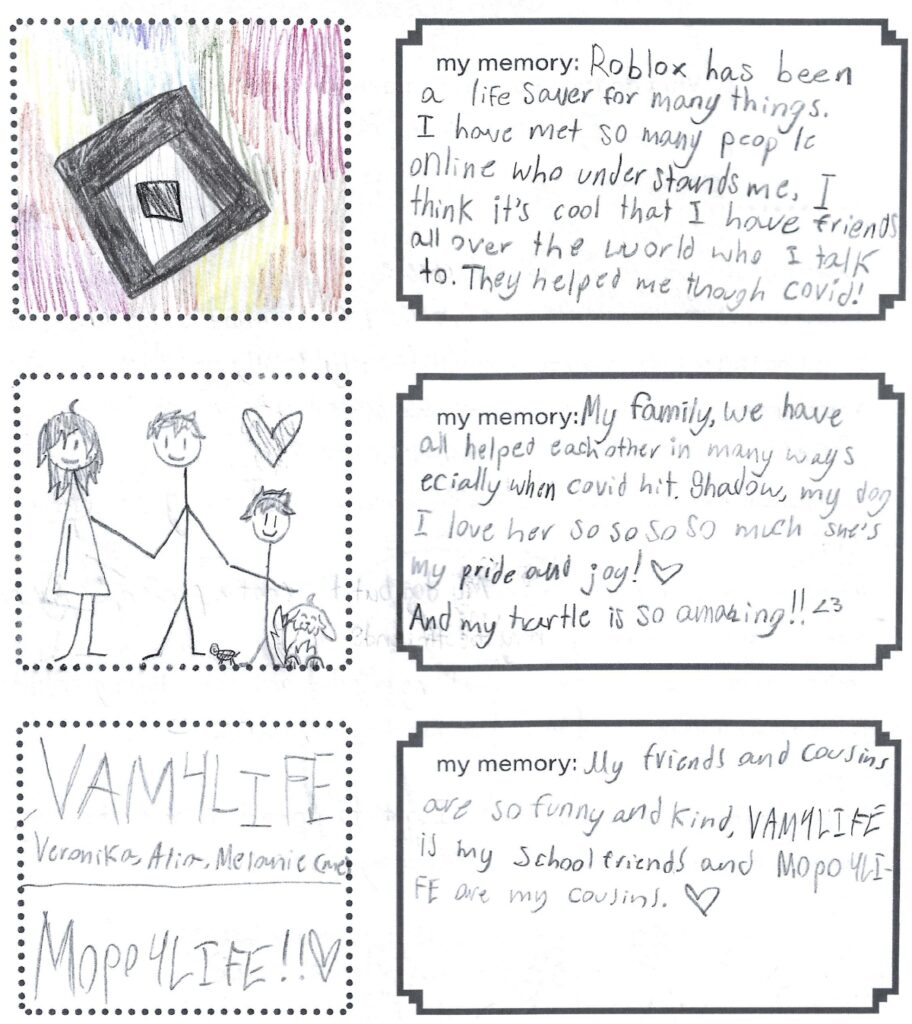 my memory: Roblox has been
a life saver for many things.
I have met so many people
online who understands me, I
think it's cool that I have friends
all over the world who I talk
to. They helped me though covid!
my memory: My family, we have
all helped each other in many ways
ecially when covid hit. Shadow, my dog
I love her so so so so much she's
my pride and joy! ♡
And my turtle is so amazing!! <3
VAM4LIFE
Veronika, Alia, Melanie
Mopo4LIFE!!♡
my memory: My friends and cousins
are so funny and kind, VAM4LIFE
is my school friends and Mopo4LI-
FE are my cousins. ♡